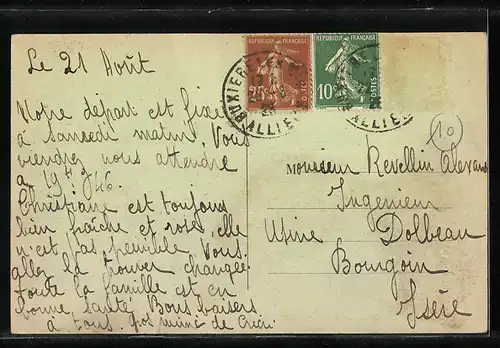 Le 21 Août
Notre départ est fixé
à samedi matin. Vous
viendrez nous attendre
à 19h 46.
Christiane est toujours
bien fraîche et rose, elle
n'est pas pénible. Vous
allez la trouver changée
toute la famille est en
bonne santé Bons baisers
à tous. gros mimi de Cricri
REPUBLIQUE FRANÇAISE
25c
POSTES
REPUBLIQUE FRANÇAISE
10c
POSTES
BUXIERE
ALLIER
ALLIER
10
Monsieur Revellin Alexans
Ingenieur
Usine Dolbeau
Bourgoin
Isère